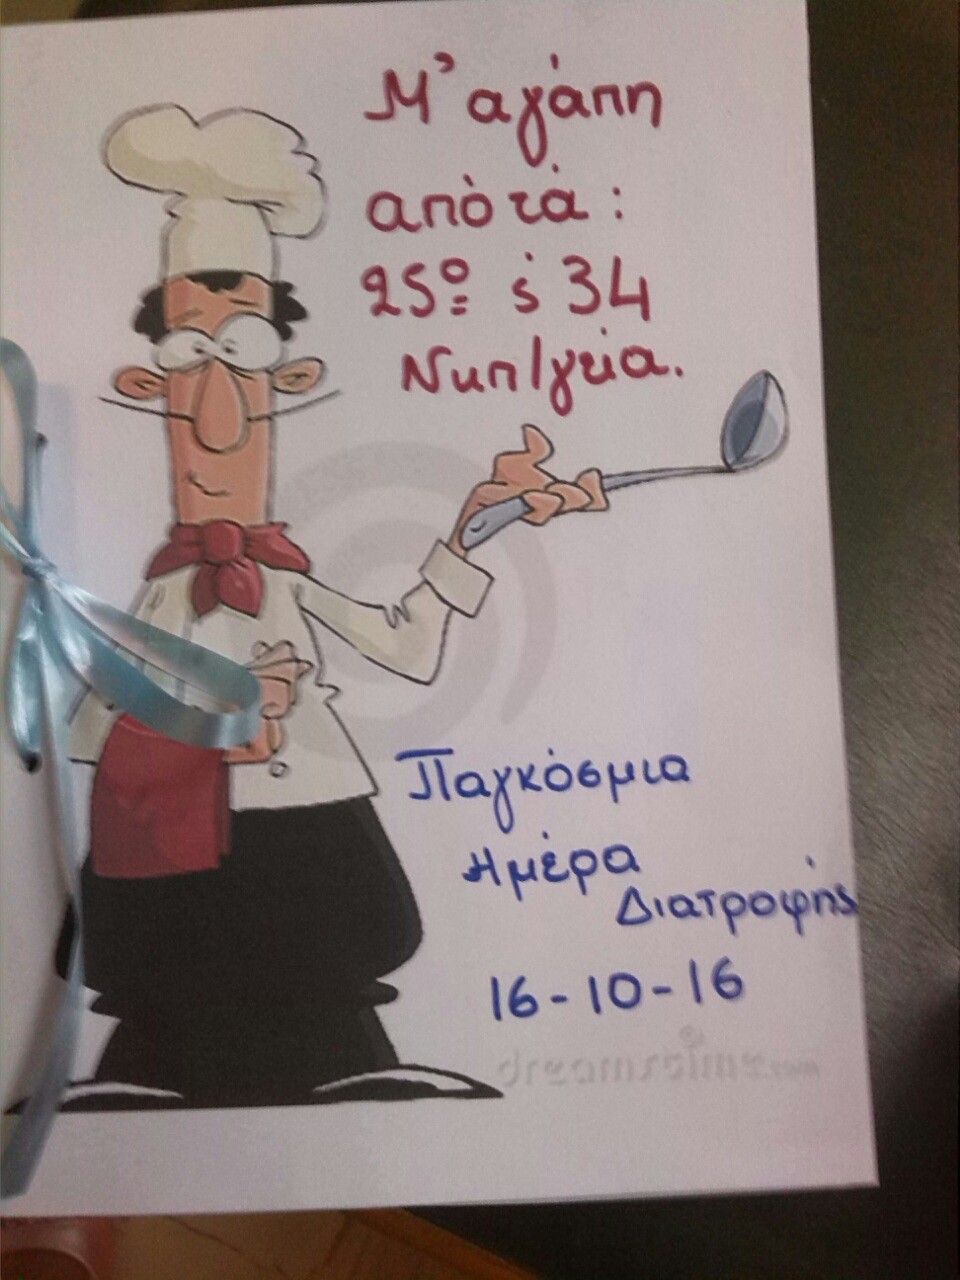 Μ' αγάπη
από τά :
25º ś 34
Νηπ/γεία.
Παγκόσμια
Ημέρα
Διατροφής
16-10-16
dreamstime.com